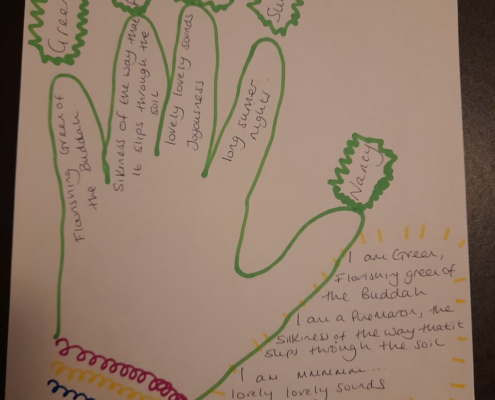 Green
Su
Flourishing Green of
the Buddah
Silkiness of the way that
it slips through the
soil
lovely lovely sounds
Joyousness
long summer
nights.
Nancy
I am Green,
Flourishing green of
the Buddah
I am a
the
Silkiness of the way that it
slips through the soil
I am mmmmm...
lovely lovely sounds